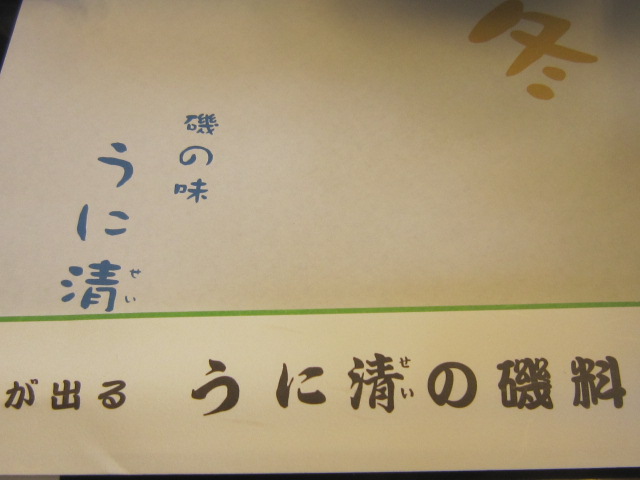 冬
磯の味
うに清
せい
が出る うに清の磯料
せい